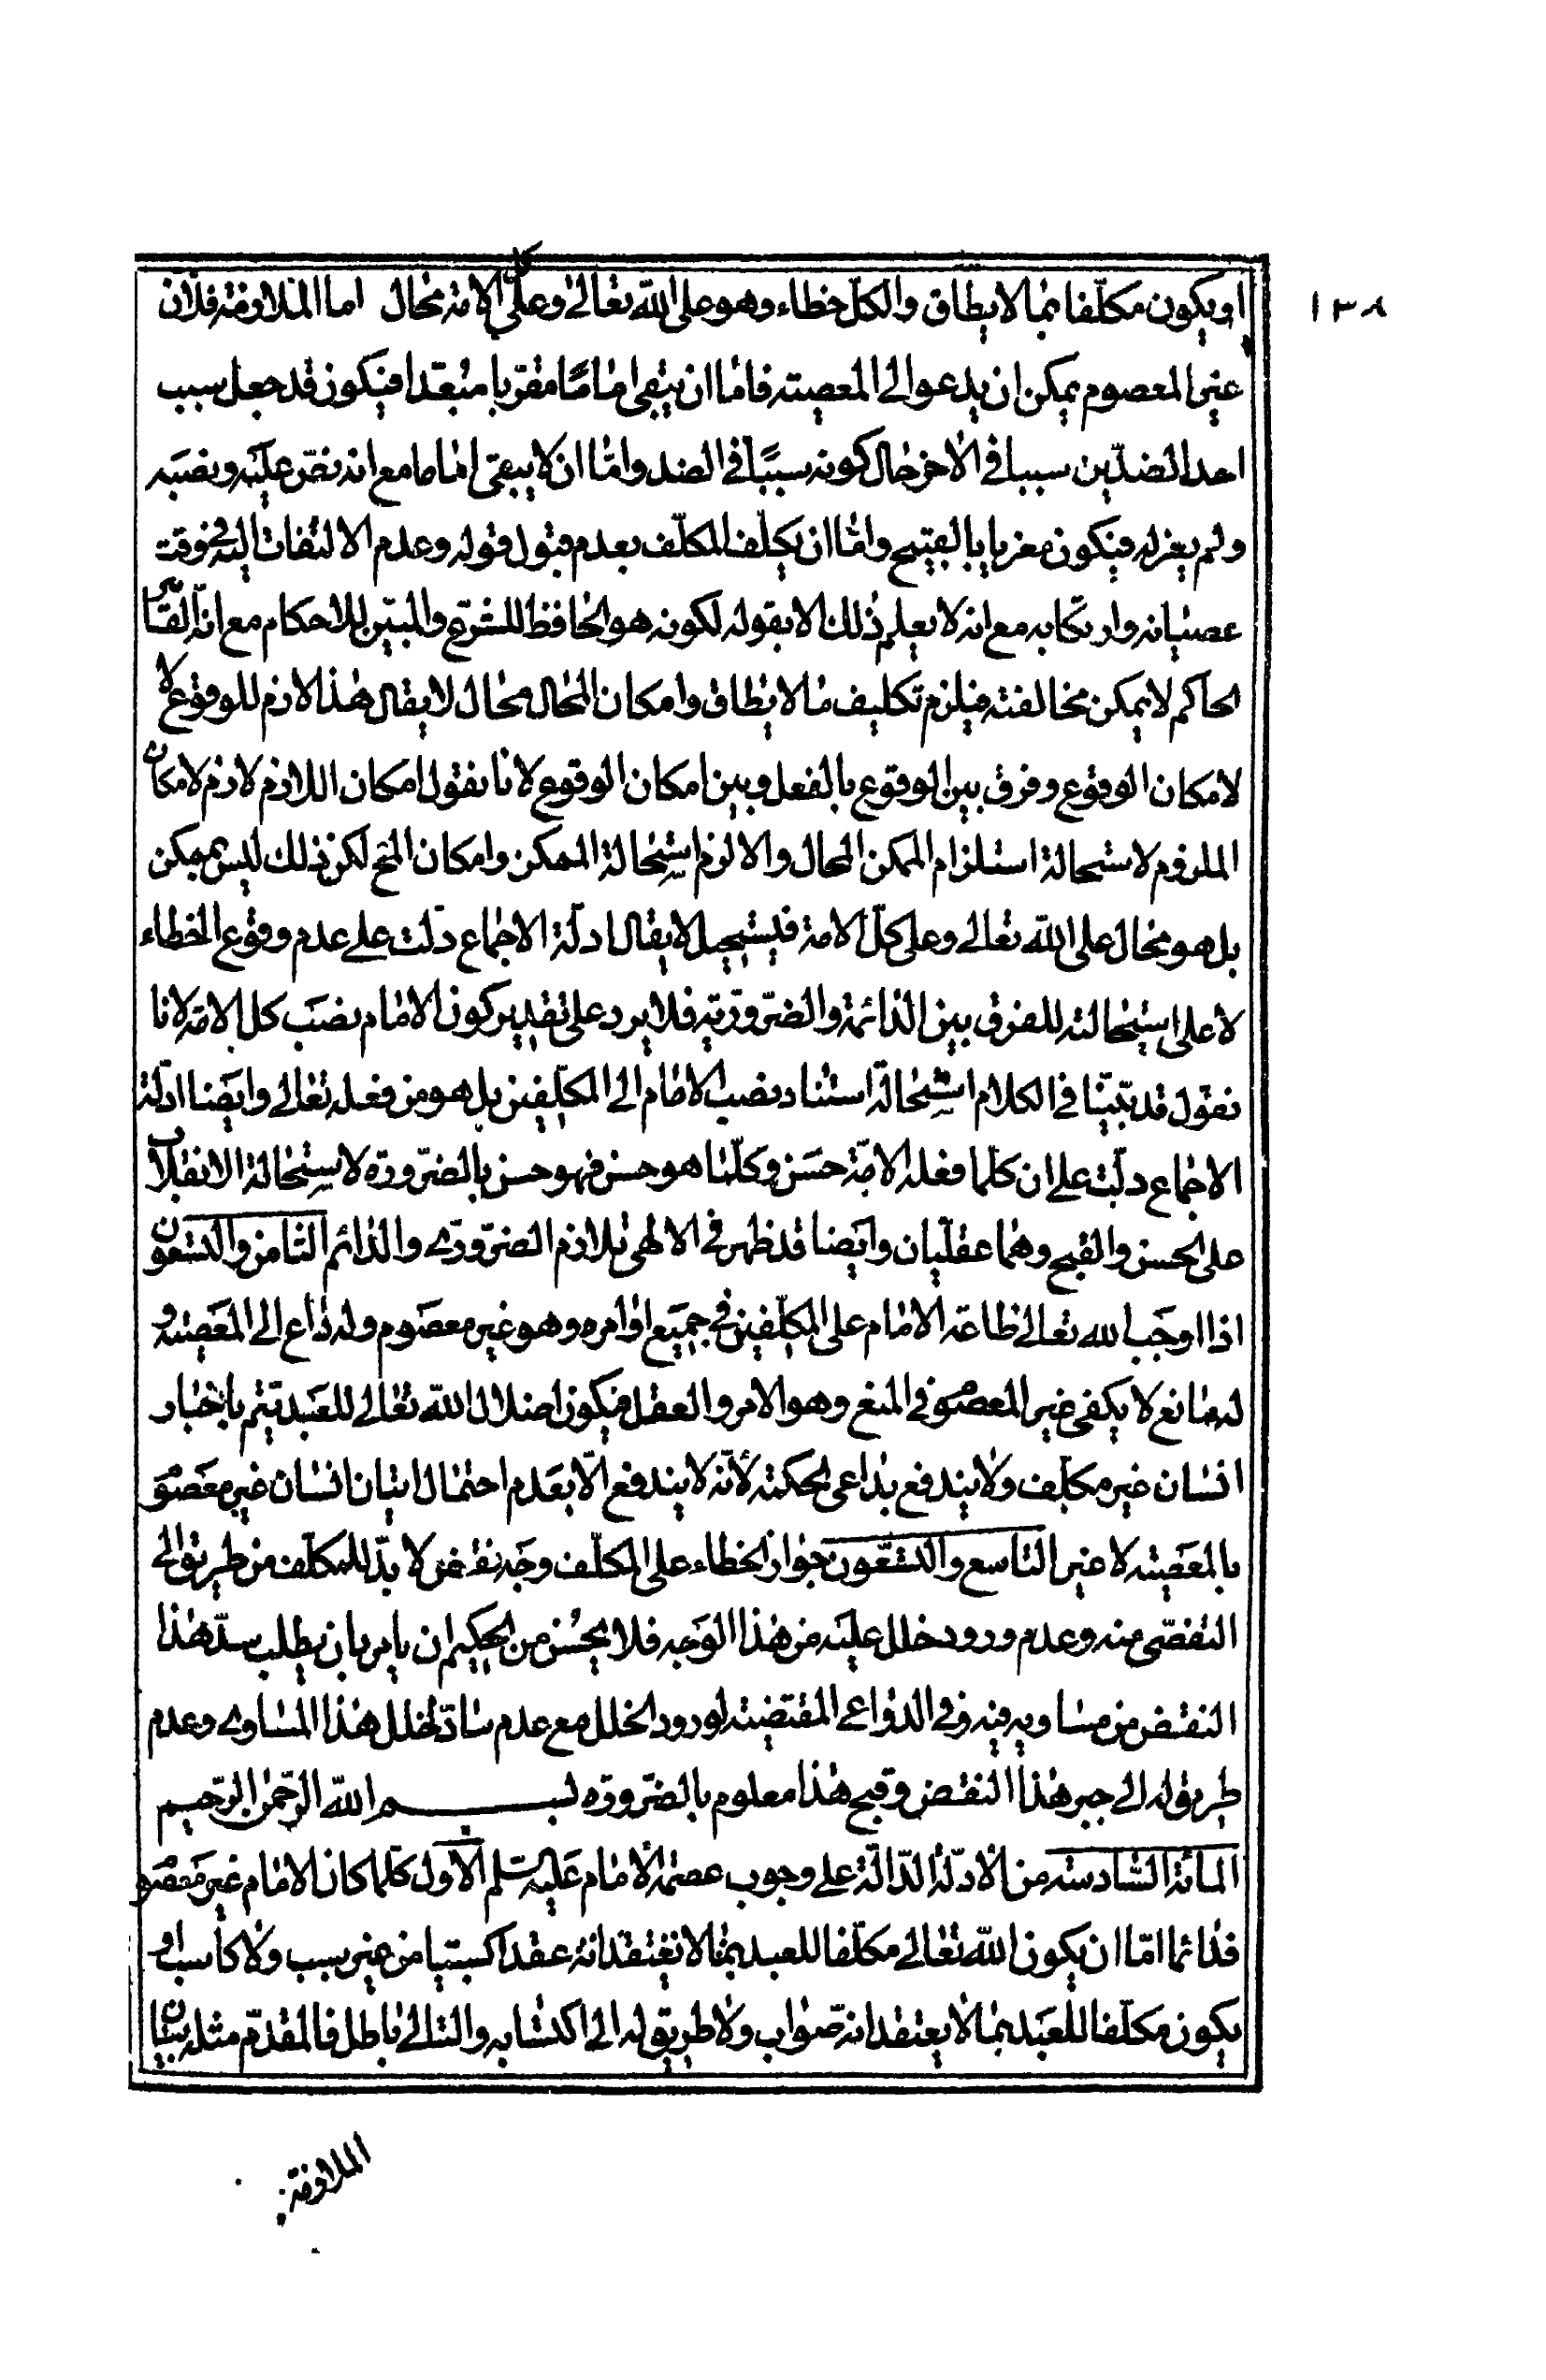 ١٣٨
او يكون مكلّفا بما لا يطاق والكلّ خطاء وهو على الله تعالى وعلى كل الامة محال اما الملازمة فلان
غير المعصوم يمكن ان يدعو الى المعصية فامّا ان يبقى اماما مقرّبا مبعّدا فيكون قد جعل سبب
احد الضدّين سببا في الاخر حال كونه سببًا في الضد وامّا ان لا يبقى اماما مع انه نصّ عليه ونصبه
ولم يعزله فيكون مغريا بالقبيح وامّا ان يكلّف المكلّف بعدم قبول قوله وعدم الالتفات اليه في وقت
عصيانه وارتكابه مع انه لا يعلم ذلك الا بقوله لكونه هو الحافظ للشرع والمبيّن للاحكام مع انّه القاهر
الحاكم لا يمكن مخالفته فيلزم تكليف ما لا يطاق وامكان المحال محال لا يقال هذا لازم للوقوع لا
لامكان الوقوع وفرق بين الوقوع بالفعل وبين امكان الوقوع لانا نقول امكان اللازم لازم لامكان
الملزوم لاستحالة استلزام الممكن المحال والا لزم استحالة الممكن وامكان المح لكن ذلك ليس بممكن
بل هو محال على الله تعالى وعلى كلّ الامة فيستحيل لا يقال ادلّة الاجماع دلّت على عدم وقوع الخطاء
لا على استحالته للفرق بين الدائمة والضّروريّة فلا يرد على تقدير كون الامام بنصب كل الامّة لانا
نقول قد بيّنّا في الكلام استحالة استناد نصب الامام الى المكلّفين بل هو من فعله تعالى وايضا ادلّة
الاجماع دلّت على ان كلّما فعله الامّة حسن وكلّما هو حسن فهو حسن بالضّرورة لاستحالة الانقلاب
على الحسن والقبح وهما عقليّان وايضا قد ظهر في الالهى تلازم الضّرورى والدائم الثامن والتسعون
اذا اوجب الله تعالى طاعة الامام على المكلّفين في جميع اوامره وهو غير معصوم وله داع الى المعصية و
له مانع لا يكفى غير المعصوم في المنع وهو الامر والعقل فيكون اضلال الله تعالى للعبد يتم باختيار
انسان غير مكلّف ولا يندفع بداعى الحكمة لأنّه لا يندفع الّا بعدم احتمال اتيان انسان غير معصوم
بالمعصية لا غير التاسع والتسعون جواز الخطاء على المكلّف وجه نقض لا بدّ للمكلّف من طريق الى
التفصّى منه وعدم ورود خلل عليه من هذا الوجه فلا يحسن من الحكيم ان يامر بان يطلب سدّ هذا
النقض من مساويه فيه وفي الدواعي المقتضية لورود الخلل مع عدم سادّ لخلل هذا المساوى وعدم
طريق له الى جبر هذا النقض وقبح هذا معلوم بالضّرورة بسم الله الرّحمن الرّحيم
المائة السّادسة من الأدلّة الدّالّة على وجوب عصمة الأمام عليه السّلم الأول كلّما كان الامام غير معصوم
فدائما امّا ان يكون الله تعالى مكلّفا للعبد بما لا يعتقد انه عقدا كسبيّا من غير سبب ولا كاسب او
يكون مكلّفا للعبد بما لا يعتقد انه صواب ولا طريق له الى اكتسابه والتالى باطل فالمقدّم مثله بيان
الملازمة